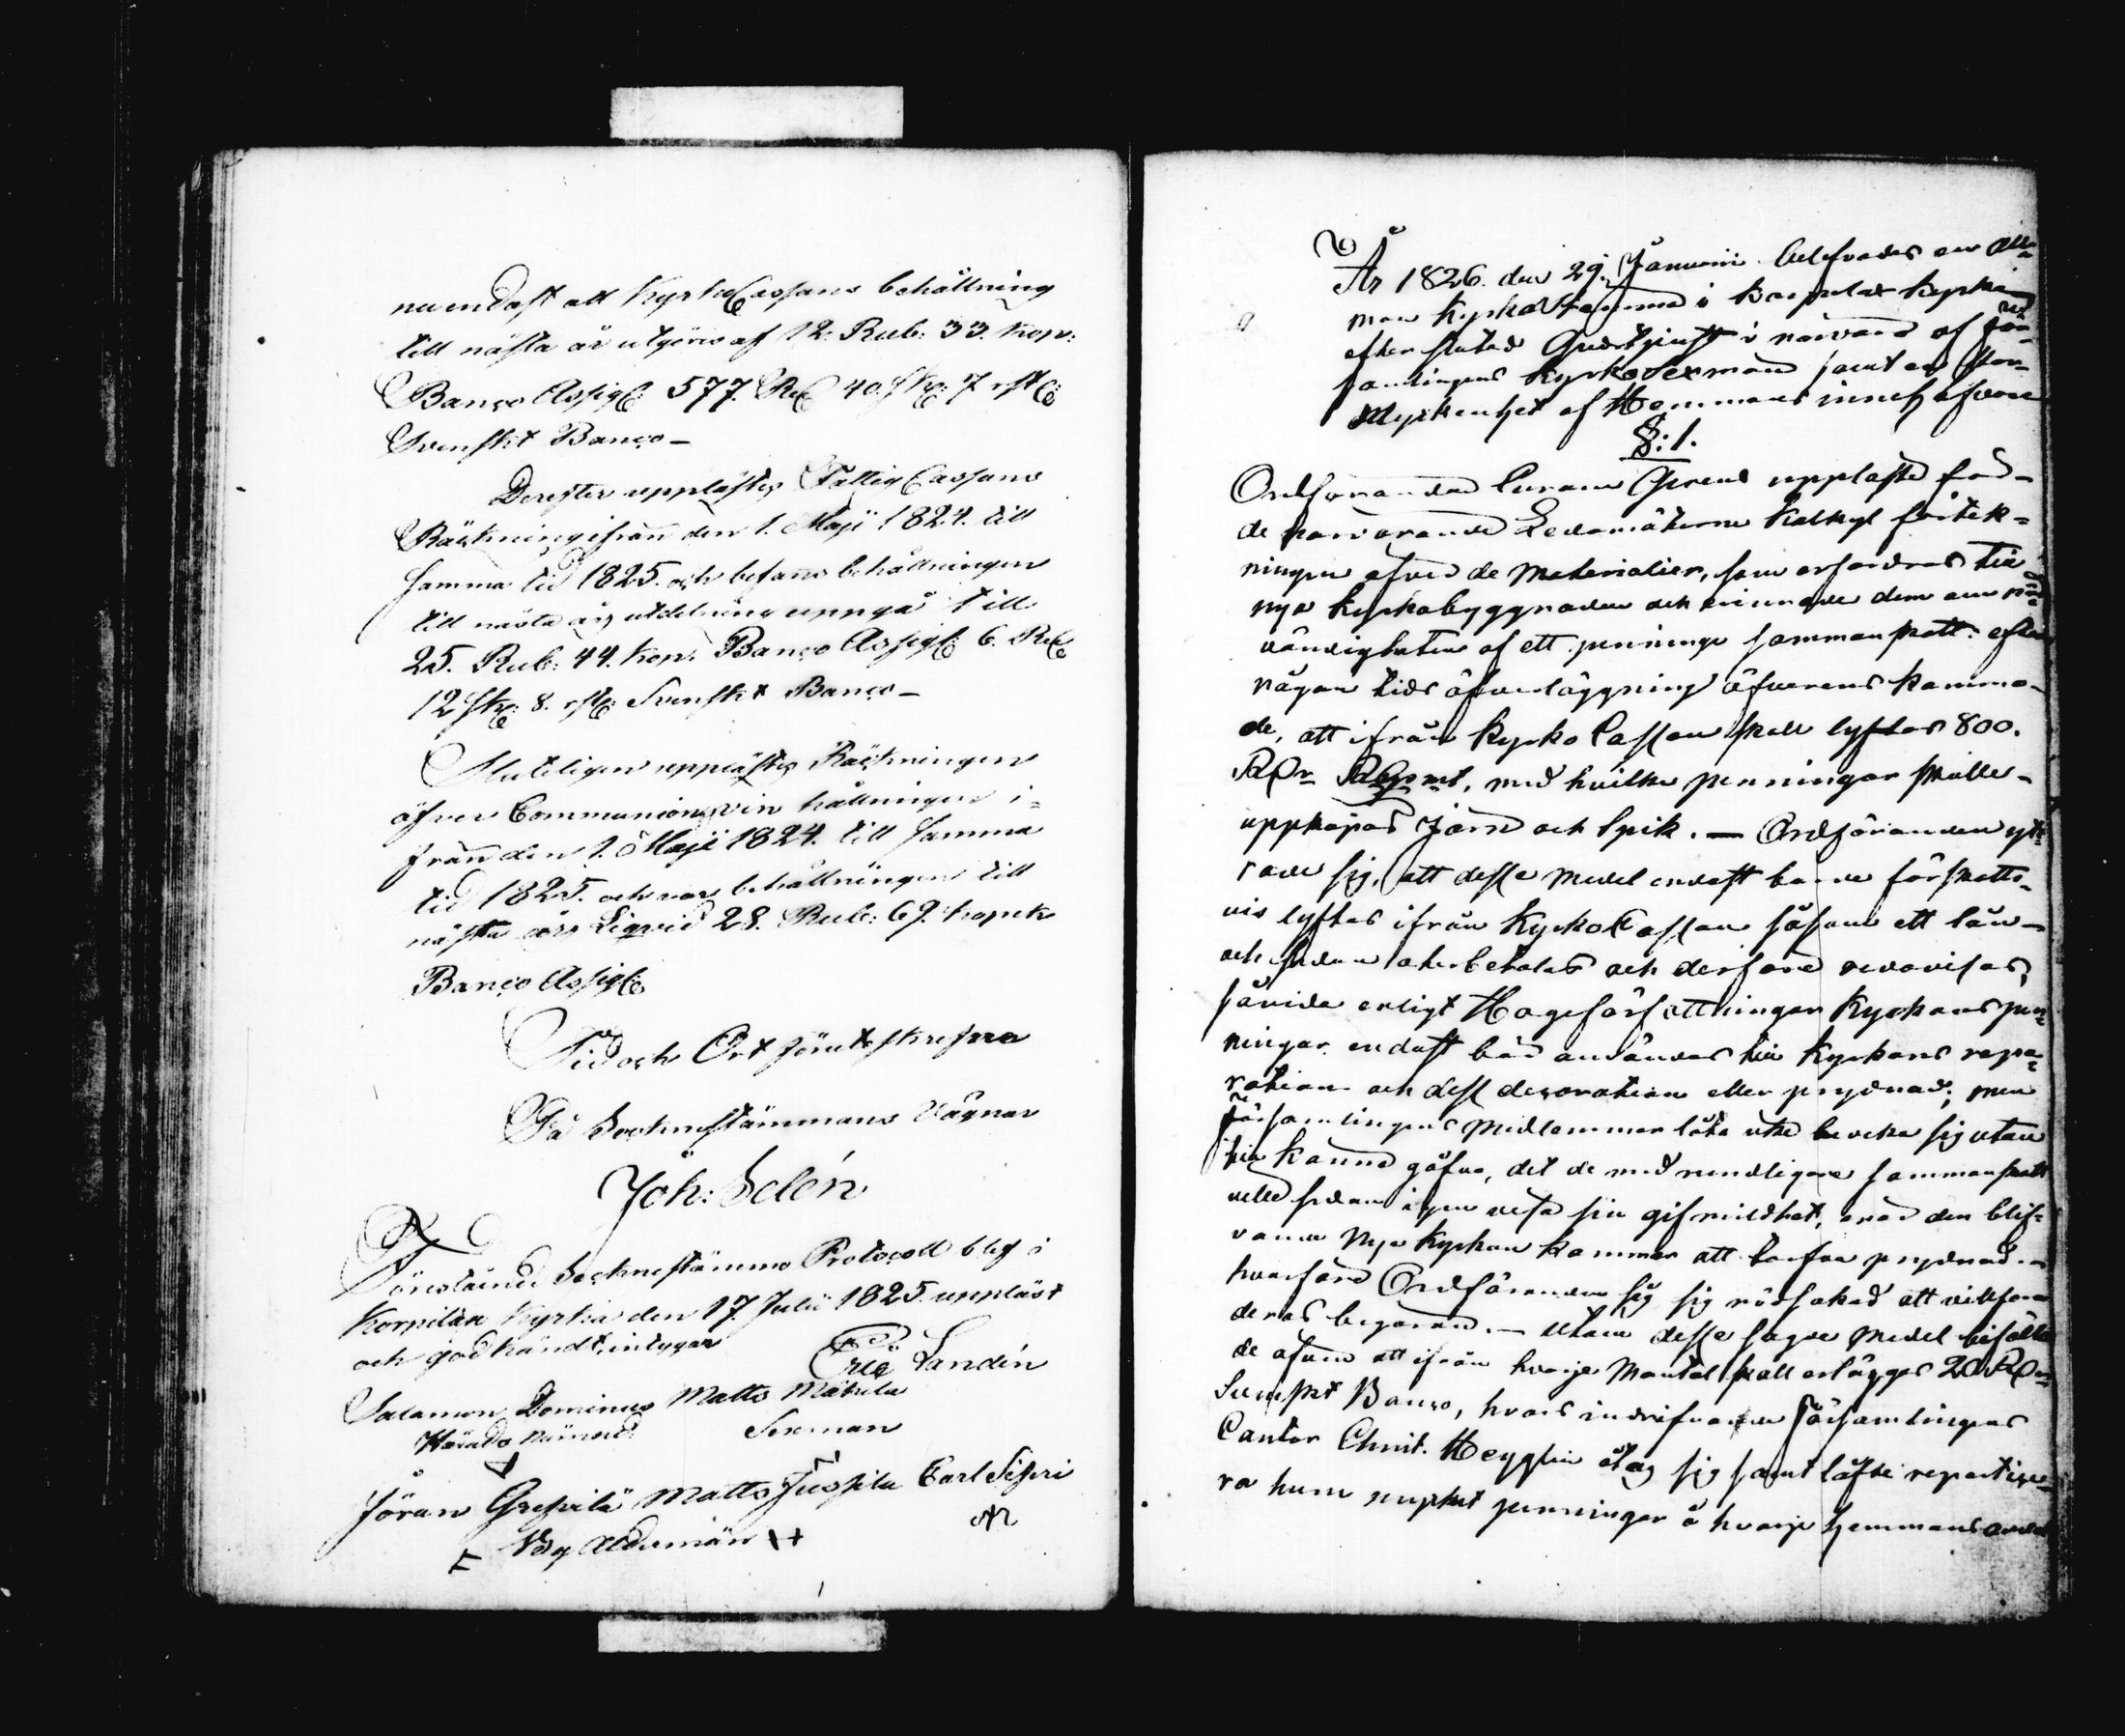 nu endast att KyrkoCassans behållning
till nästa år utgöres af 12. Rub. 33. kop:
Banco Assigt: 577. Rd 40. sk: 7. rst:
Svenskt Banco –
Derefter upplästes Fattig Cassans
Räkning ifrån den 1. Maji 1824. till
samma tid 1825. och befans behållningen
till nästa års utdelning uppgå till
25. Rub: 44. kop. Banco Assigt: 6. Rd
12 sk: 8. rst: Svenskt Banco –
Sluteligen upplästes Räkningen
öfver Communions vin hållningen i=
från den 1. Maji 1824. till samma
tid 1825. och var behållningen till
nästa års Liqvid 28. Rub: 69. kopek
Banco Assigt:
Tid och Ort förutskrefne
På Sockneståmmans Vägnar
Joh: Helén
Förestående Sockneståmmo Protocoll blef i
Korpilax Kyrka den 17. Julii 1825. uppläst
och godkändt, intygar
Eric Landén
Salamon Dominus Matts Mäkelä
Härads Nämnd: Sexman
Jöran Grepilä Matts Juosila Carl Siperi
Ålderman
År 1826. den 29. Januarii behfvades en All=
män KyrkoStämma i Korpilax Kyrka
efter slutad Gudstjenst i närvaro af För=
samlingens Kyrko Sexmän samt en stor
Myckenhet af Hemmans innehafvare
§: 1.
Ordföranden Curam Girend upplåste för
de närvarande Ledamöterne Kalkyl förtek=
ningen öfver de Materialier, som erfordras till
nya Kyrkobyggnaden och erinrade dem om nöd=
vändigheten af ett pennings sammanskott. efter
någon tids öfverläggning öfverens kommo
de, att ifrån Kyrko Cassan skall lyftas 800.
med hvilka penningar skulle
uppköpas Järn och Spik. — Ordföranden ytt=
rade sig, att desse medel endast borde förskotts=
vis lyftas ifrån KyrkoCassan såsom ett lån
och sedan återbetalas och derföre redovisas,
såvida enligt Högeförfattningar Kyrkans pen=
ningar endast bör användas till Kyrkans repa=
ration och dess decoration eller prydnad; men
Församlingens Medlemmar läto icke beveka sig utan
till känna gåfvo, det de med rundligare sammanskott
ville sedan igen visa sin gifmildhet, när den blif=
vande Nya Kyrkan kommer att behöfva prydnad. —
hvarföre Ordföranden såg sig nödsakad att villfara
deras begäran. — Utom desse sagde medel biföllo
de äfven att ifrån hvarje Mantal skall erlägges 20 R
Svenskt Banco, hvars indrifvande Församlingens
Cantor Christ. Heyglin åtog sig samt låfte repartise=
ra huru mycket penningar å hvarje hemmans andel